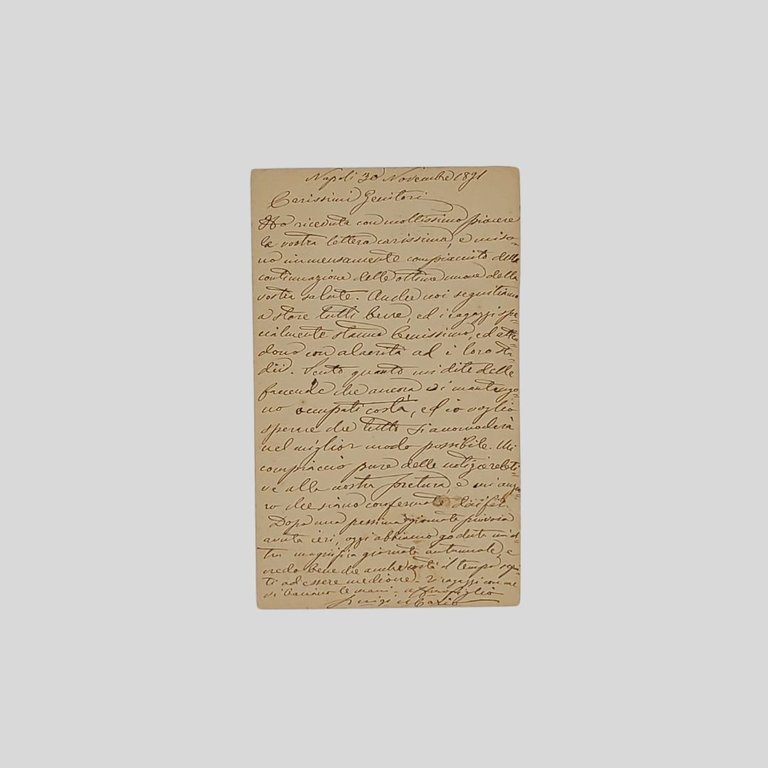 Napoli 30 Novembre 1891
Carissimi Genitori
Ho ricevuta con moltissimo piacere
la vostra lettera carissima, e mi so-
no immensamente compiaciuto della
continuazione delle ottime nuove della
vostra salute. Anche noi seguitiamo
a stare tutti bene, ed i ragazzi spe-
cialmente stanno benissimo, ed atten-
dono con alacrità ad i loro stu-
dii. Sento quanto mi dite delle
faccende che ancora vi mantengo-
no occupati costà, ed io voglio
sperare che tutto si accomoderà
nel miglior modo possibile. Mi
compiaccio pure delle notizie relati-
ve alla nostra pretura e mi augu-
ro che siano confermate dai fatti.
Dopo una pessima giornata piovosa
avuta ieri, oggi abbiamo goduta
magnifica giornata autunnale, e
credo bene che anche costà il tempo
ad essere I ragazzi con me
vi baciano le mani
Luigi